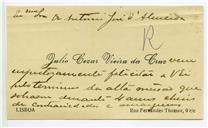 Dr. Antonio José d'Almeida
R
Julio Cezar Vieira da Cruz vem
felicitar a V. Ex.
pelo termino da alta missão que
durante 4 annos cheios
de contrariedades e
LISBOA Rua Fernandes Thomaz, 9